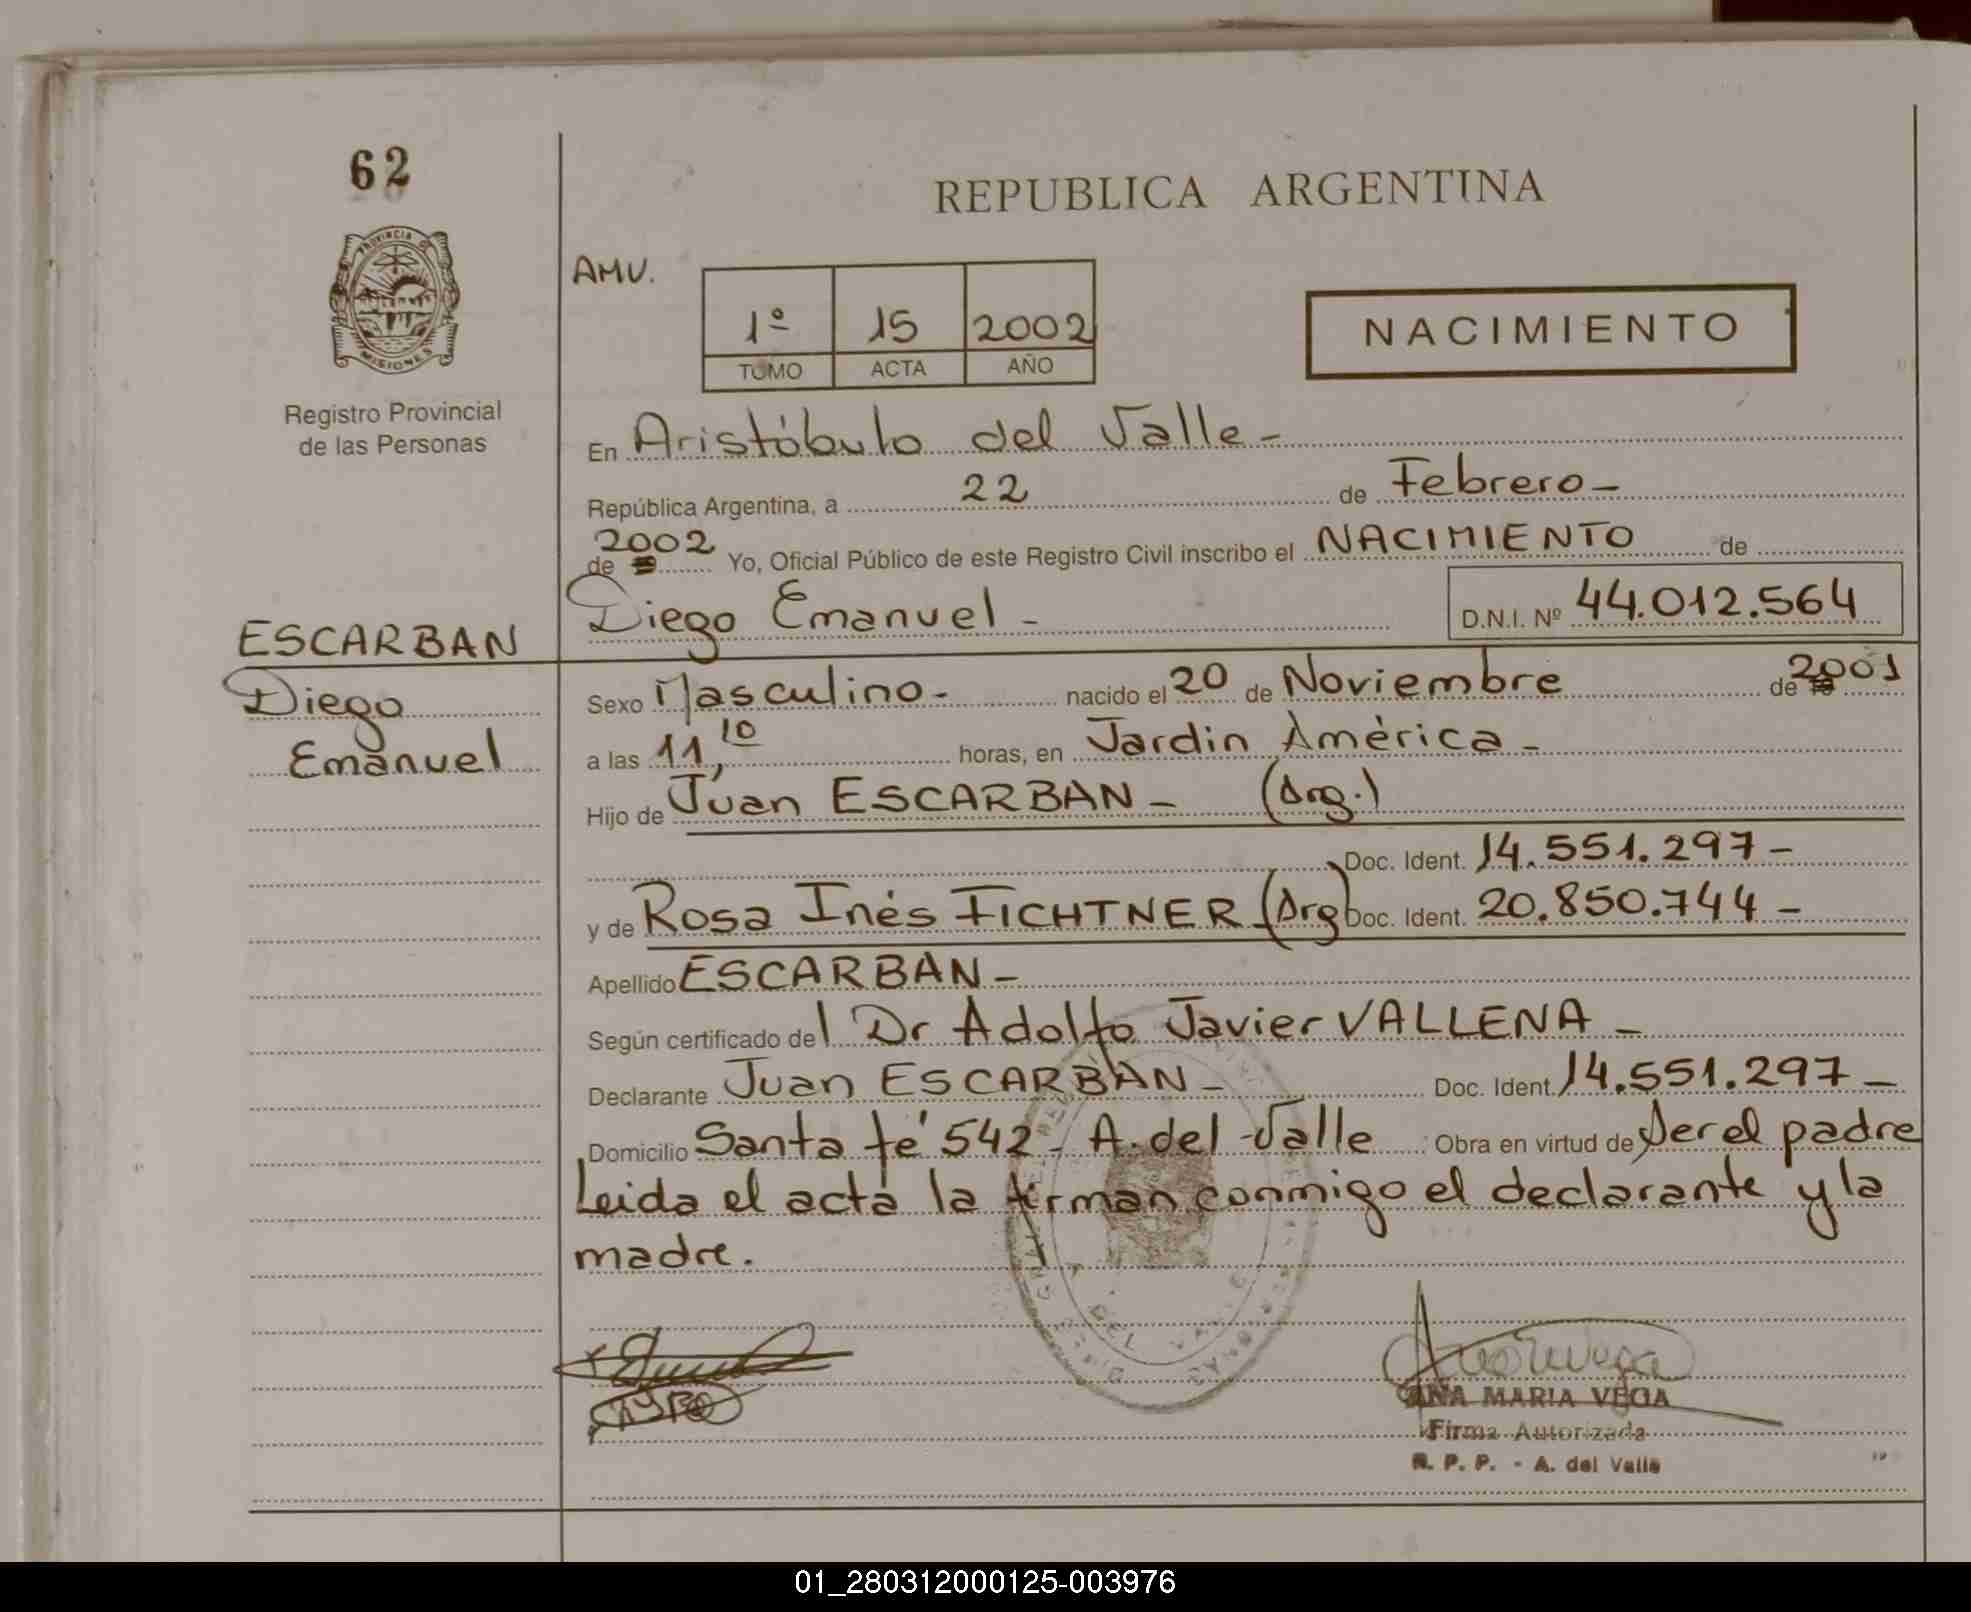 62
PROVINCIA DE
MISIONES
Registro Provincial
de las Personas
REPUBLICA ARGENTINA
AMV.
1º 15 2002
TOMO ACTA AÑO
NACIMIENTO
En Aristóbulo del Valle -
República Argentina, a 22 de Febrero -
2002
de Yo, Oficial Público de este Registro Civil inscribo el NACIMIENTO de
Diego Emanuel - D.N.I. Nº 44.012.564
ESCARBAN
Diego
Emanuel
Sexo Masculino - nacido el 20 de Noviembre de 2001
a las 11,10 horas, en Jardin América -
Hijo de Juan ESCARBAN - (Arg.)
Doc. Ident. 14.551.297 -
y de Rosa Inés FICHTNER - (Arg) Doc. Ident. 20.850.744 -
Apellido ESCARBAN -
Según certificado del Dr Adolfo Javier VALLENA -
Declarante Juan ESCARBAN - Doc. Ident. 14.551.297 -
Domicilio Santa fé 542 - A. del Valle Obra en virtud de ser el padre
Leida el acta la firman conmigo el declarante y la
madre.
DEL VALLE
ANA MARIA VEGA
Firma Autorizada
R. P. P. - A. del Valle
01_280312000125-003976